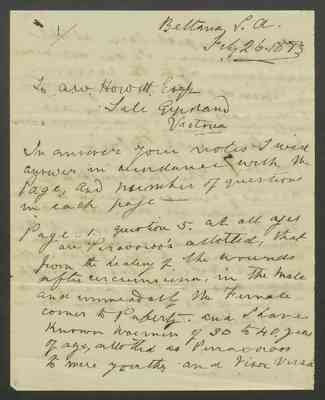 Beltana S. A.
Feby 26. 1883
To A W Howitt. Esqr
Sale Gipsland
Victoria
In answer your notes I will
answer in accordance with the
Page, and number of questions
in each page
Page 1. question 5. at all ages
are Pirrooroo's allotted, that
from the healing of the wounds
after circumcision, in the male
and immediately the Female
comes to Puberty. and I have
Known women of 30 to 40 years
of age, allotted as Pirraooroos
to mere youths. and Visor Versa